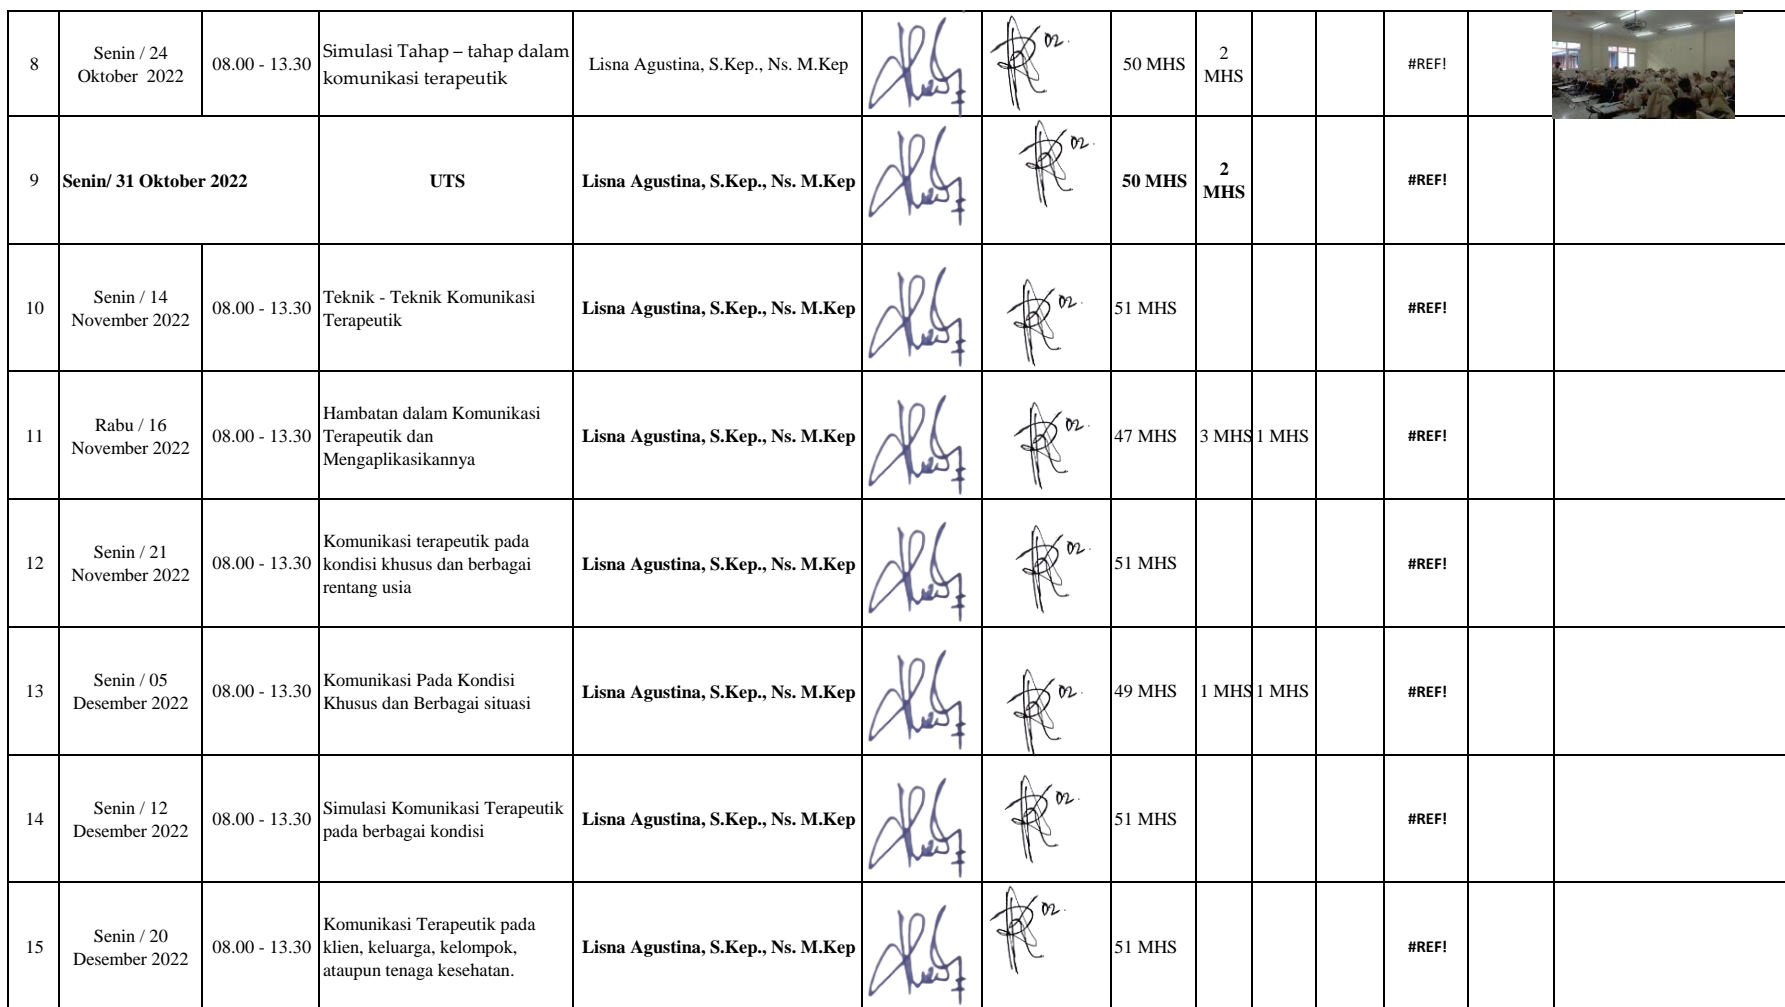 8
Senin / 24
Oktober 2022
08.00 - 13.30
Simulasi Tahap – tahap dalam
komunikasi terapeutik
Lisna Agustina, S.Kep., Ns. M.Kep
02.
50 MHS
2
MHS
#REF!
9
Senin/ 31 Oktober 2022
UTS
Lisna Agustina, S.Kep., Ns. M.Kep
02.
50 MHS
2
MHS
#REF!
10
Senin / 14
November 2022
08.00 - 13.30
Teknik - Teknik Komunikasi
Terapeutik
Lisna Agustina, S.Kep., Ns. M.Kep
02.
51 MHS
#REF!
11
Rabu / 16
November 2022
08.00 - 13.30
Hambatan dalam Komunikasi
Terapeutik dan
Mengaplikasikannya
Lisna Agustina, S.Kep., Ns. M.Kep
02.
47 MHS
3 MHS
1 MHS
#REF!
12
Senin / 21
November 2022
08.00 - 13.30
Komunikasi terapeutik pada
kondisi khusus dan berbagai
rentang usia
Lisna Agustina, S.Kep., Ns. M.Kep
02.
51 MHS
#REF!
13
Senin / 05
Desember 2022
08.00 - 13.30
Komunikasi Pada Kondisi
Khusus dan Berbagai situasi
Lisna Agustina, S.Kep., Ns. M.Kep
02.
49 MHS
1 MHS
1 MHS
#REF!
14
Senin / 12
Desember 2022
08.00 - 13.30
Simulasi Komunikasi Terapeutik
pada berbagai kondisi
Lisna Agustina, S.Kep., Ns. M.Kep
02.
51 MHS
#REF!
15
Senin / 20
Desember 2022
08.00 - 13.30
Komunikasi Terapeutik pada
klien, keluarga, kelompok,
ataupun tenaga kesehatan.
Lisna Agustina, S.Kep., Ns. M.Kep
02.
51 MHS
#REF!